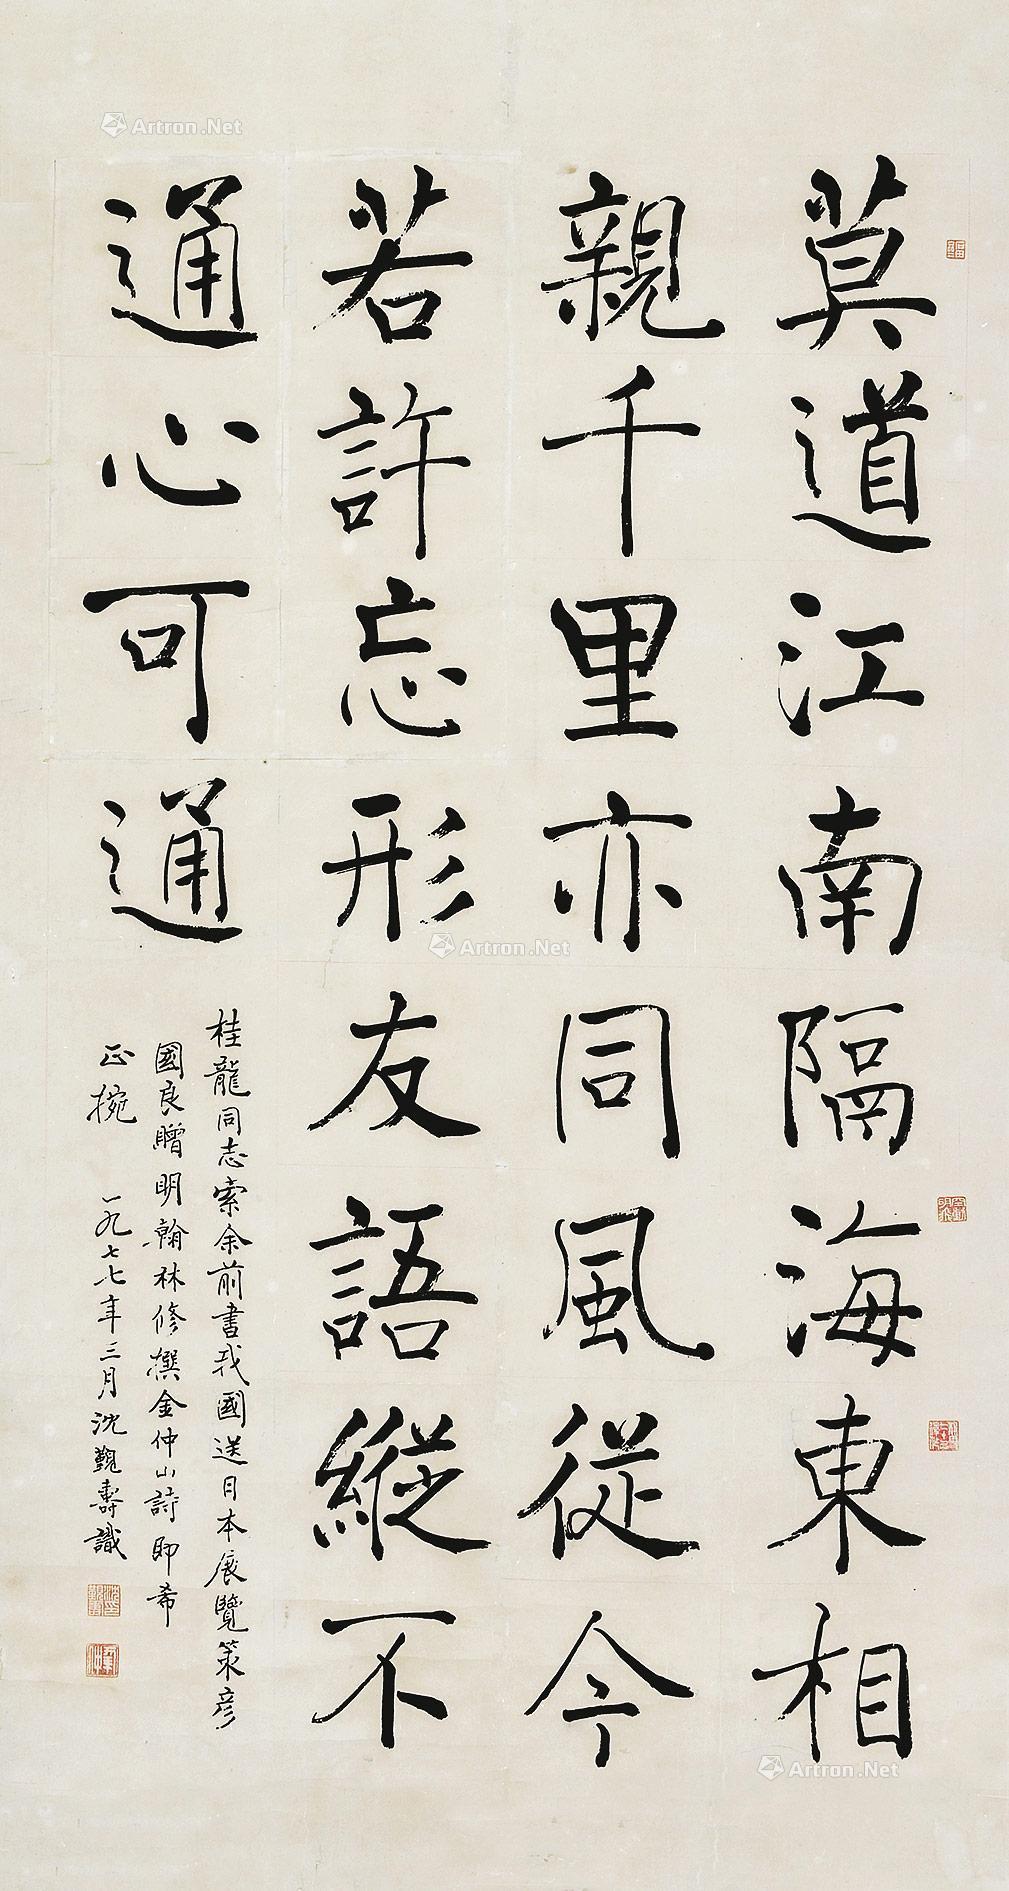 莫道江南隔海東相
親千里亦同風從今
若許忘形友語縱不
通心可通
桂龍同志索余前書我國送日本展覽策彥
國良贈明翰林修撰金仲山詩即希
正捥
一九七七年三月沈覲壽識
Artron.Net
Artron.Net
Artron.Net